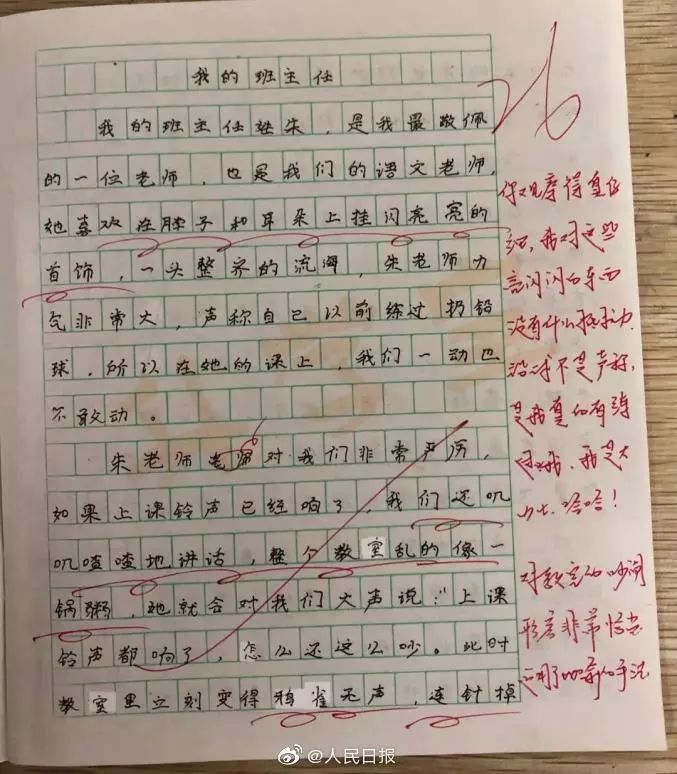 我的班主任
26
我的班主任姓朱，是我最敬佩
的一位老师，也是我们的语文老师，
她喜欢在脖子和耳朵上挂闪亮亮的
首饰，一头整齐的流海，朱老师力
气非常大，声称自己以前练过扔铅
球，所以在她的课上，我们一动也
不敢动。
朱老师老师对我们非常严厉，
如果上课铃声已经响了，我们还叽
叽喳喳地讲话，整个教室乱的像一
锅粥，她就会对我们大声说：“上课
铃声都响了，怎么还这么吵。此时
教室里立刻变得鸦雀无声，连针掉
你观察得真仔
细，我对这些
亮闪闪的东西
没有什么抵抗力
是我真的有练
哈哈！
对教室的吵闹
形容非常恰当
@人民日报